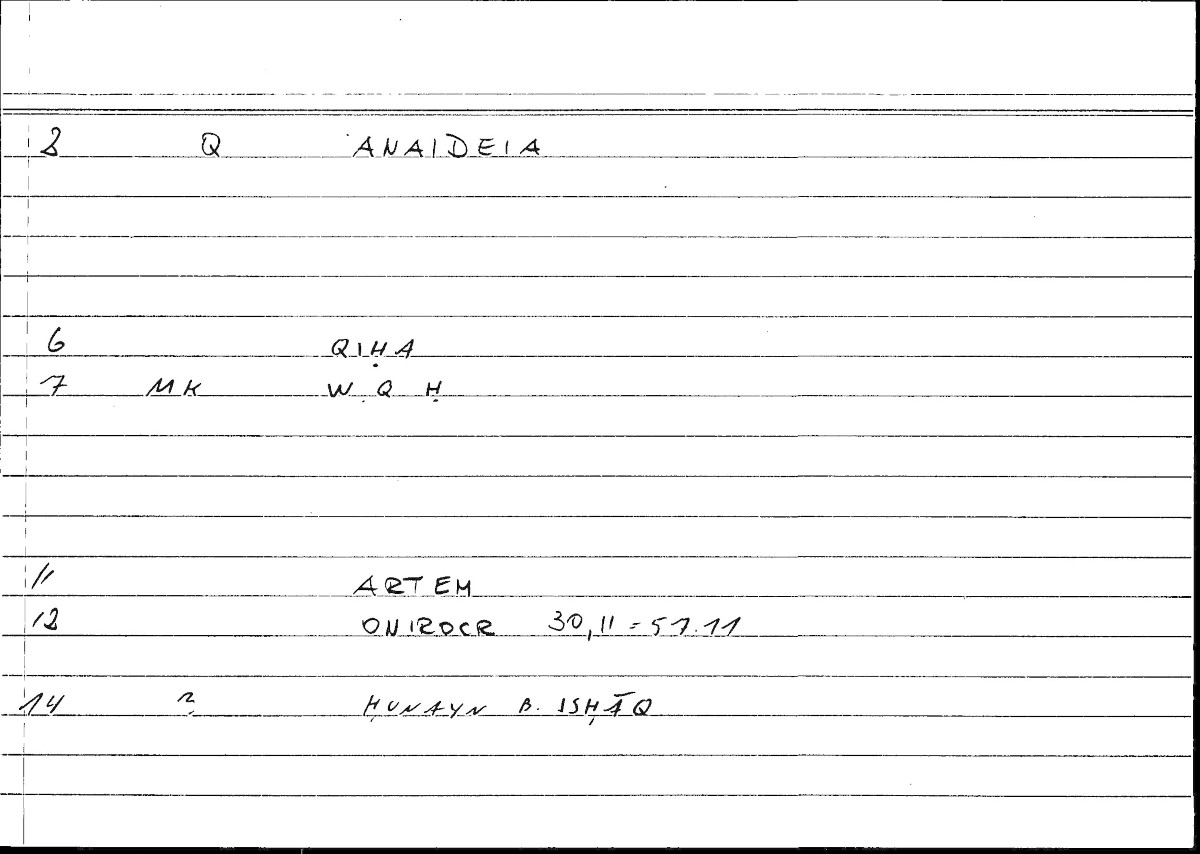 2 Q ANAIDEIA
6 QIḤA
7 MK W Q Ḥ
11 ARTEM
12 ONIROCR 30,11 = 57.11
14 ? ḤUNAYN B. ISḤĀQ